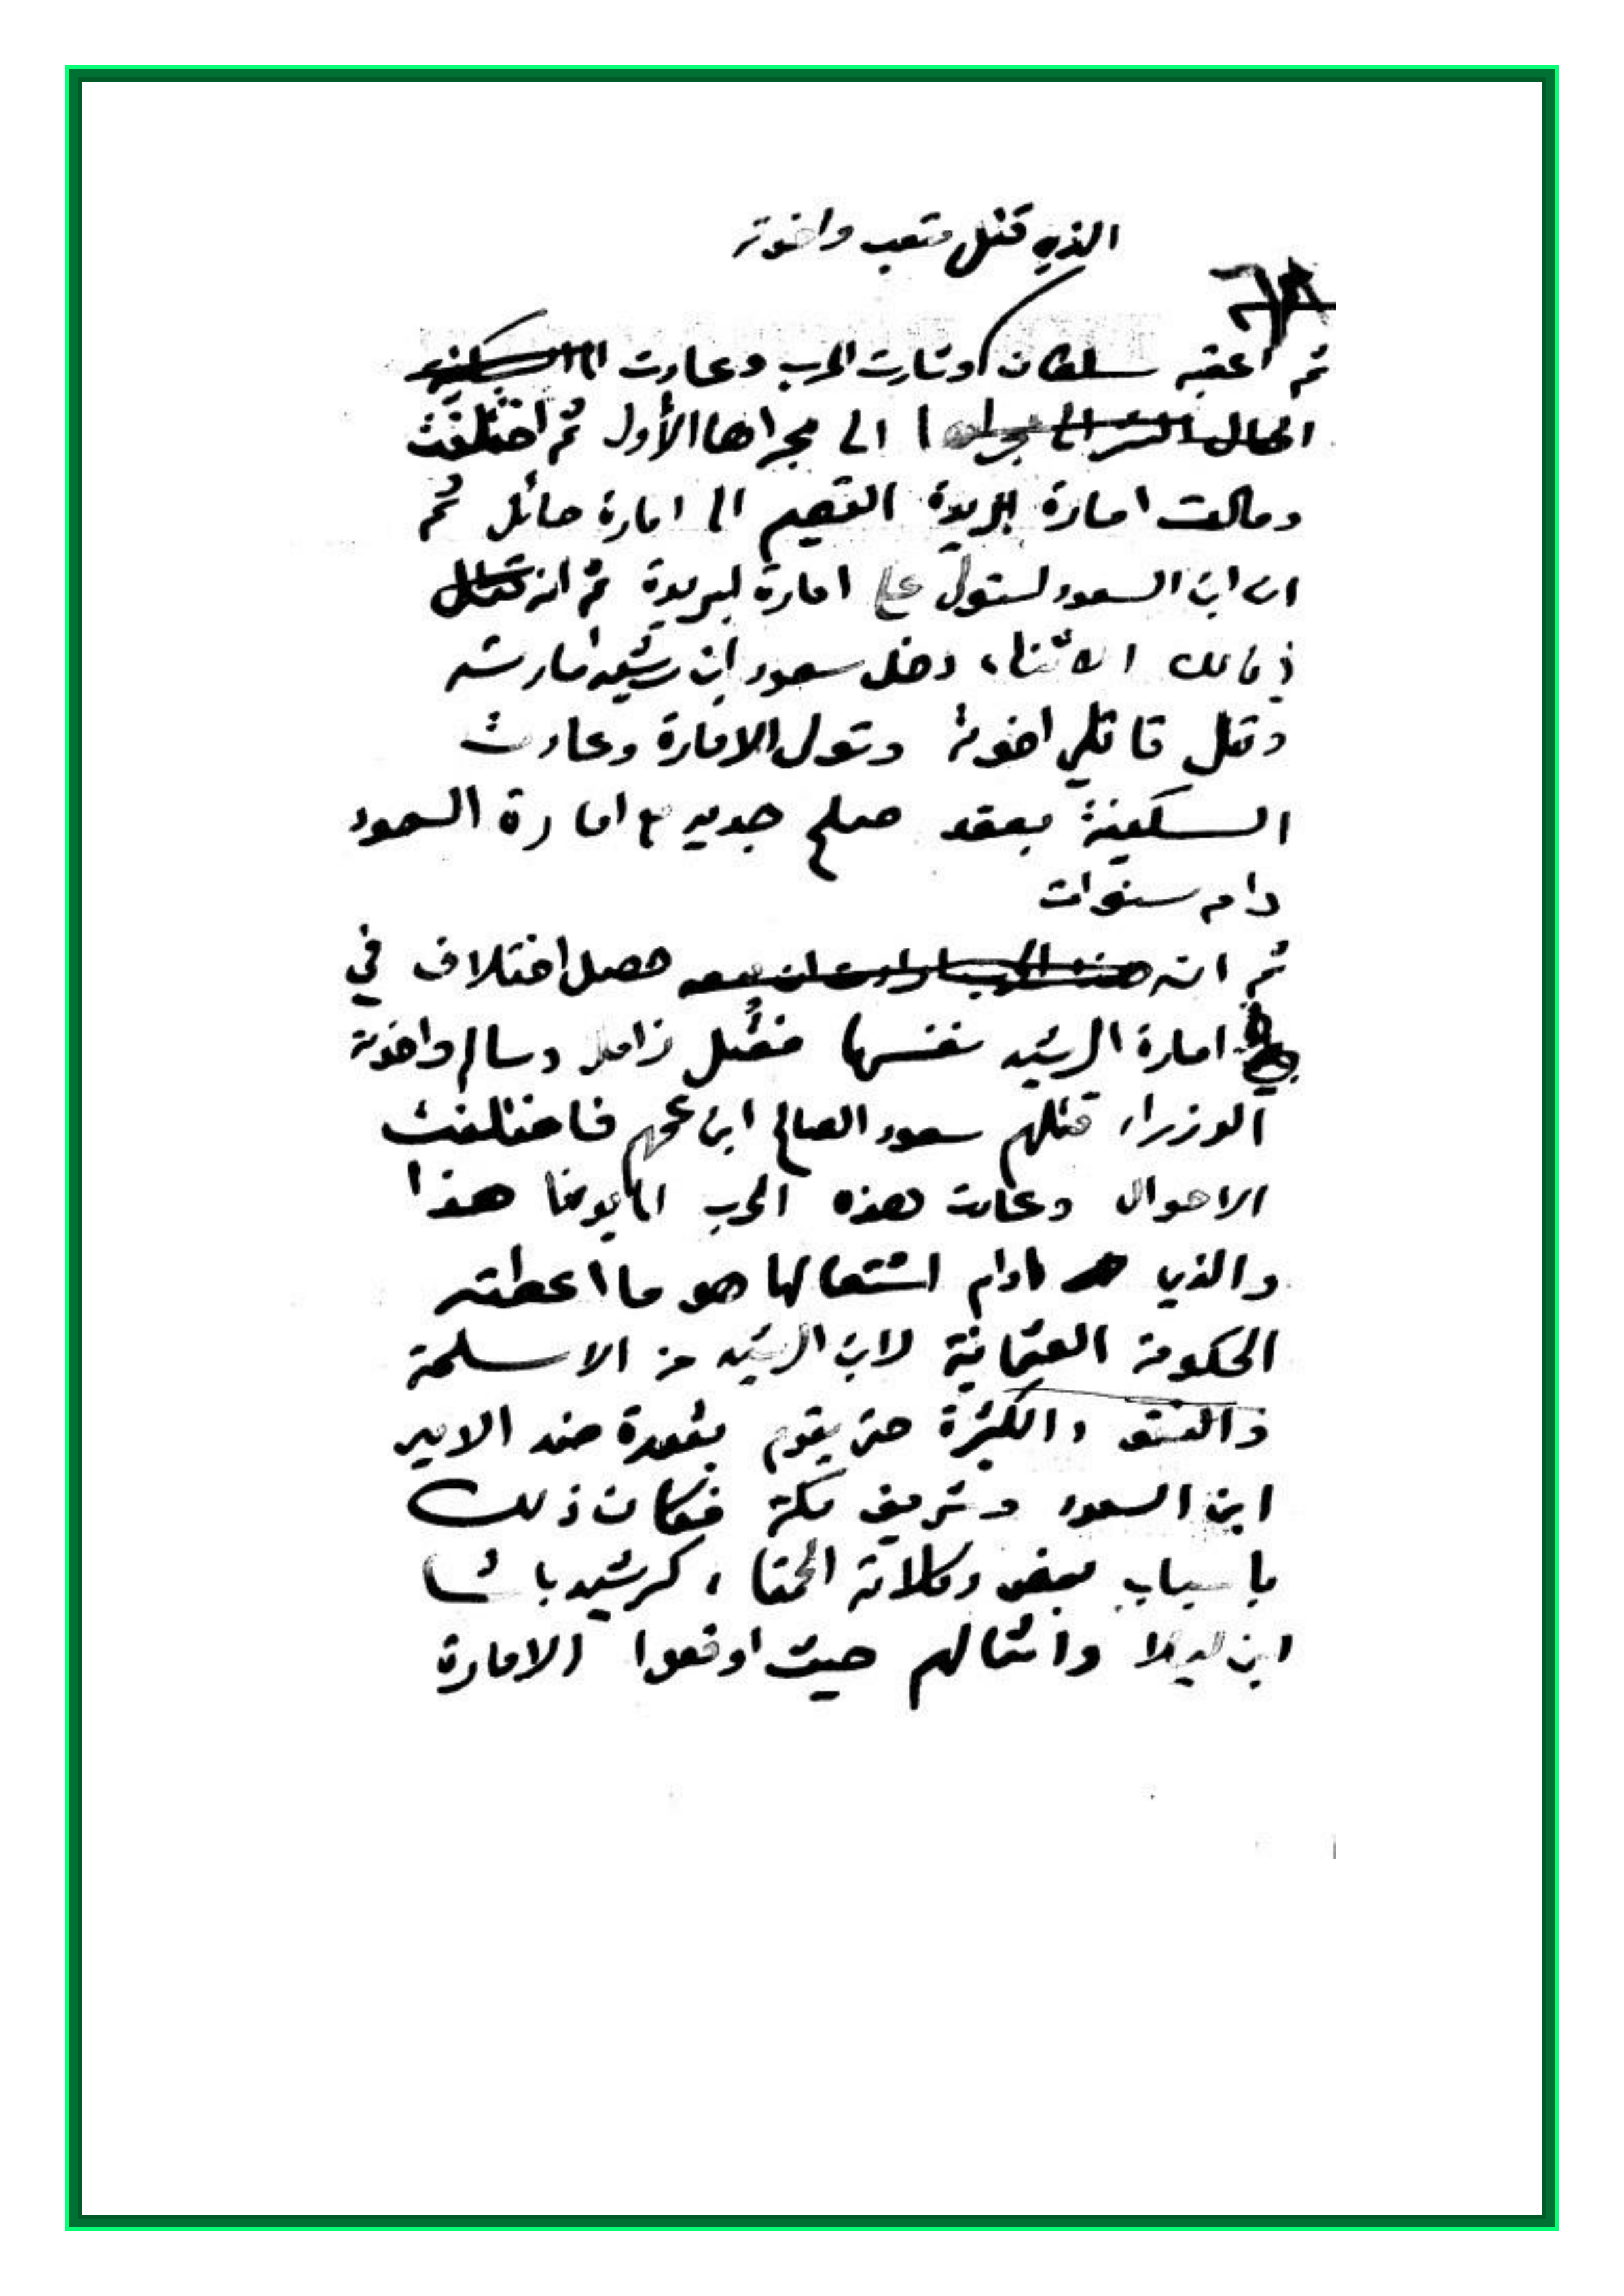 الذي قتل متعب واخوته
ثم اعقبه سلطان وثارت الحرب وعادت
الحال الى مجراها الأول ثم اختلفت
ومالت امارة بريدة القصيم الى امارة حائل ثم
ان ابن السعود استولى على امارة بريدة ثم انه
الاثناء دخل سعود ابن رشيد امارته
وقتل قاتلي اخوته وتولى الامارة وعادت
السكينة بعقد صلح جديد مع امارة السعود
دام سنوات
ثم انه حصل اختلاف في
امارة الرشيد نفسها فقُتل زامل وسالم واخوته
الوزراء قتلهم سعود الصالح ابن عمهم فاختلفت
الاحوال وعادت هذه الحرب الى يومنا هذا
والذي ادام اشتعالها هو ما اعطته
الحكومة العثمانية لابن الرشيد من الاسلحة
والكثرة حتى يقوم بثورة ضد الامير
ابن السعود وشريف مكة فكان ذلك
باسباب بعض وكلائه الحمقاء كرشيد باشا
ابن ليلا وامثالهم حيث اوقعوا الامارة